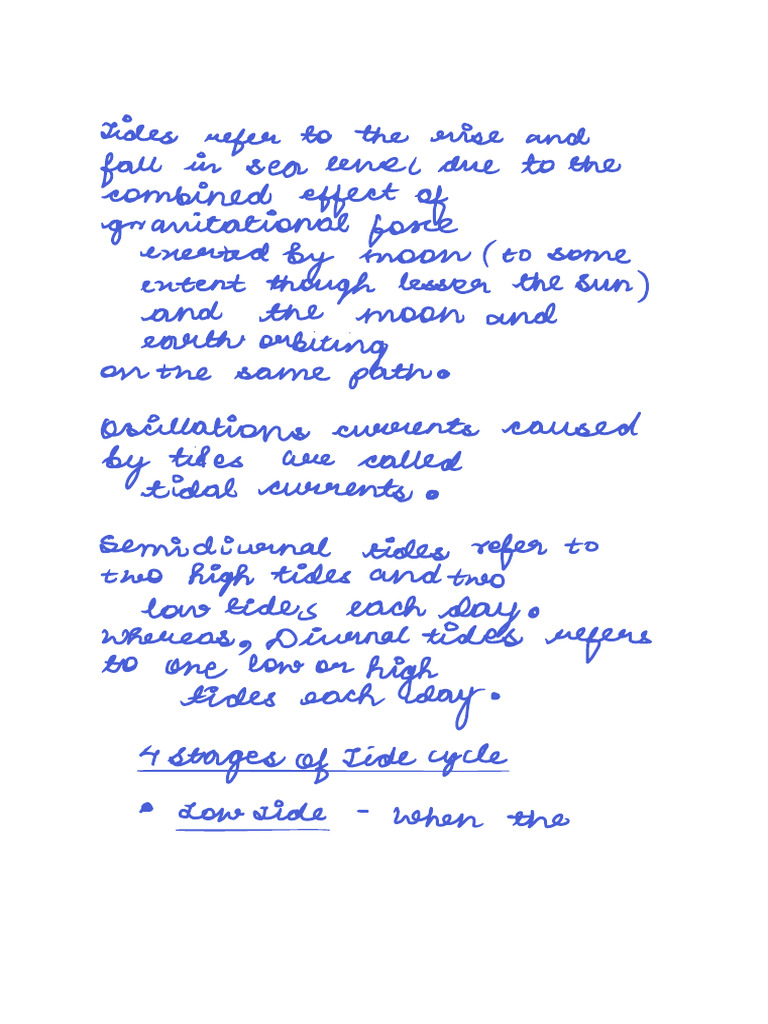 Tides refer to the rise and
fall in sea level due to the
combined effect of
gravitational force
exerted by moon (to some
extent though lesser the sun)
and the moon and
earth orbiting
on the same path.
Oscillations currents caused
by tides are called
tidal currents.
Semidiurnal tides refer to
two high tides and two
low tides each day.
Whereas, Diurnal tides refers
to one low or high
tides each day.
4 stages of Tide cycle
• Low Tide - When the